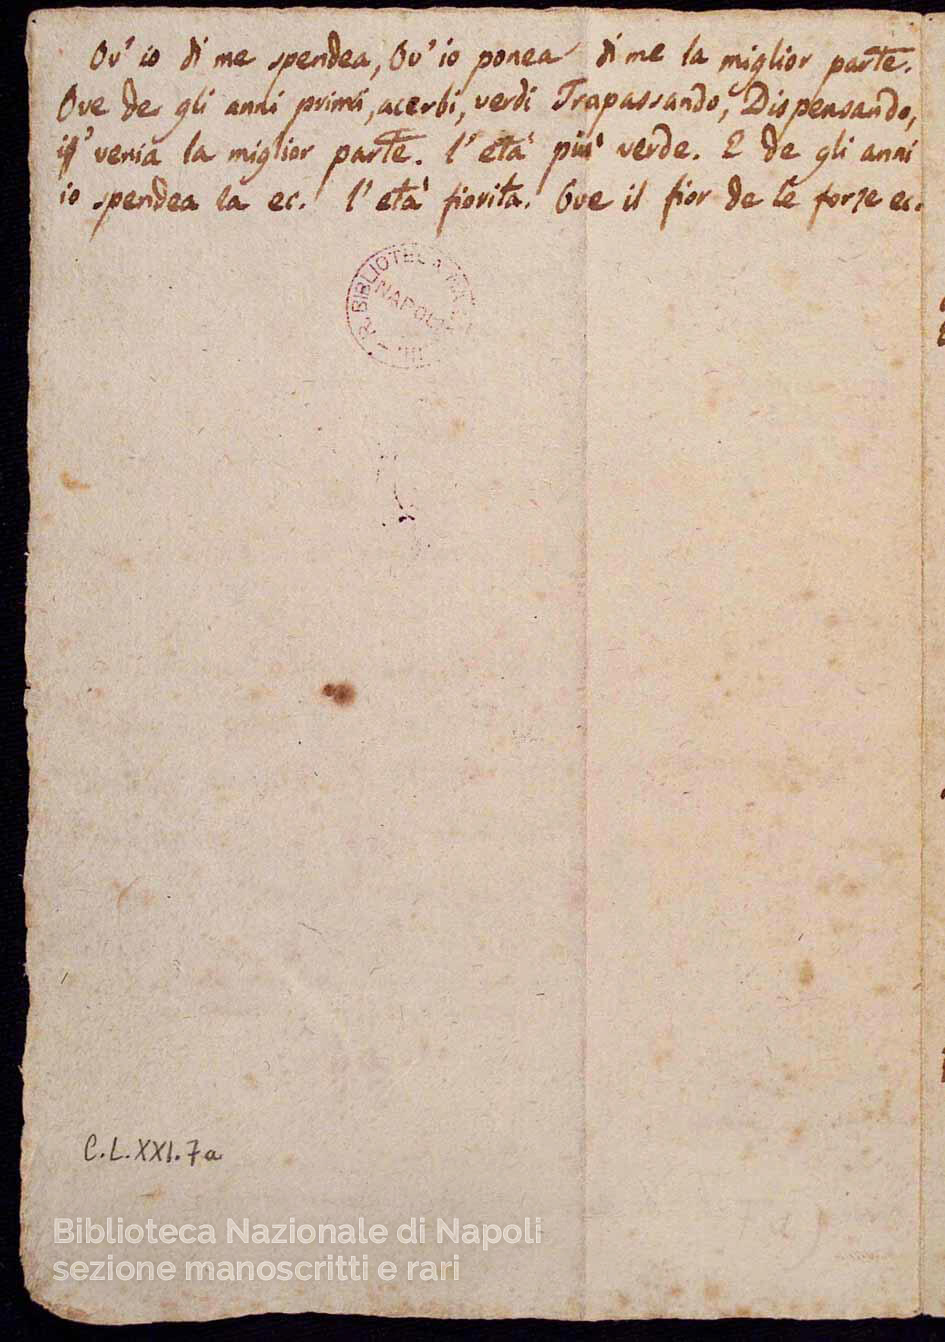 Ov' io di me spendea, Ov' io ponea di me la miglior parte.
Ove de gli anni primi, acerbi, verdi Trapassando, Dispensando,
venia la miglior parte. l' età più verde. E de gli anni
io spendea la ec. l' età fiorita. Ove il fior de le forze ec.
R. BIBLIOTECA
NAPOLI
C.L.XXI.7a
Biblioteca Nazionale di Napoli
sezione manoscritti e rari